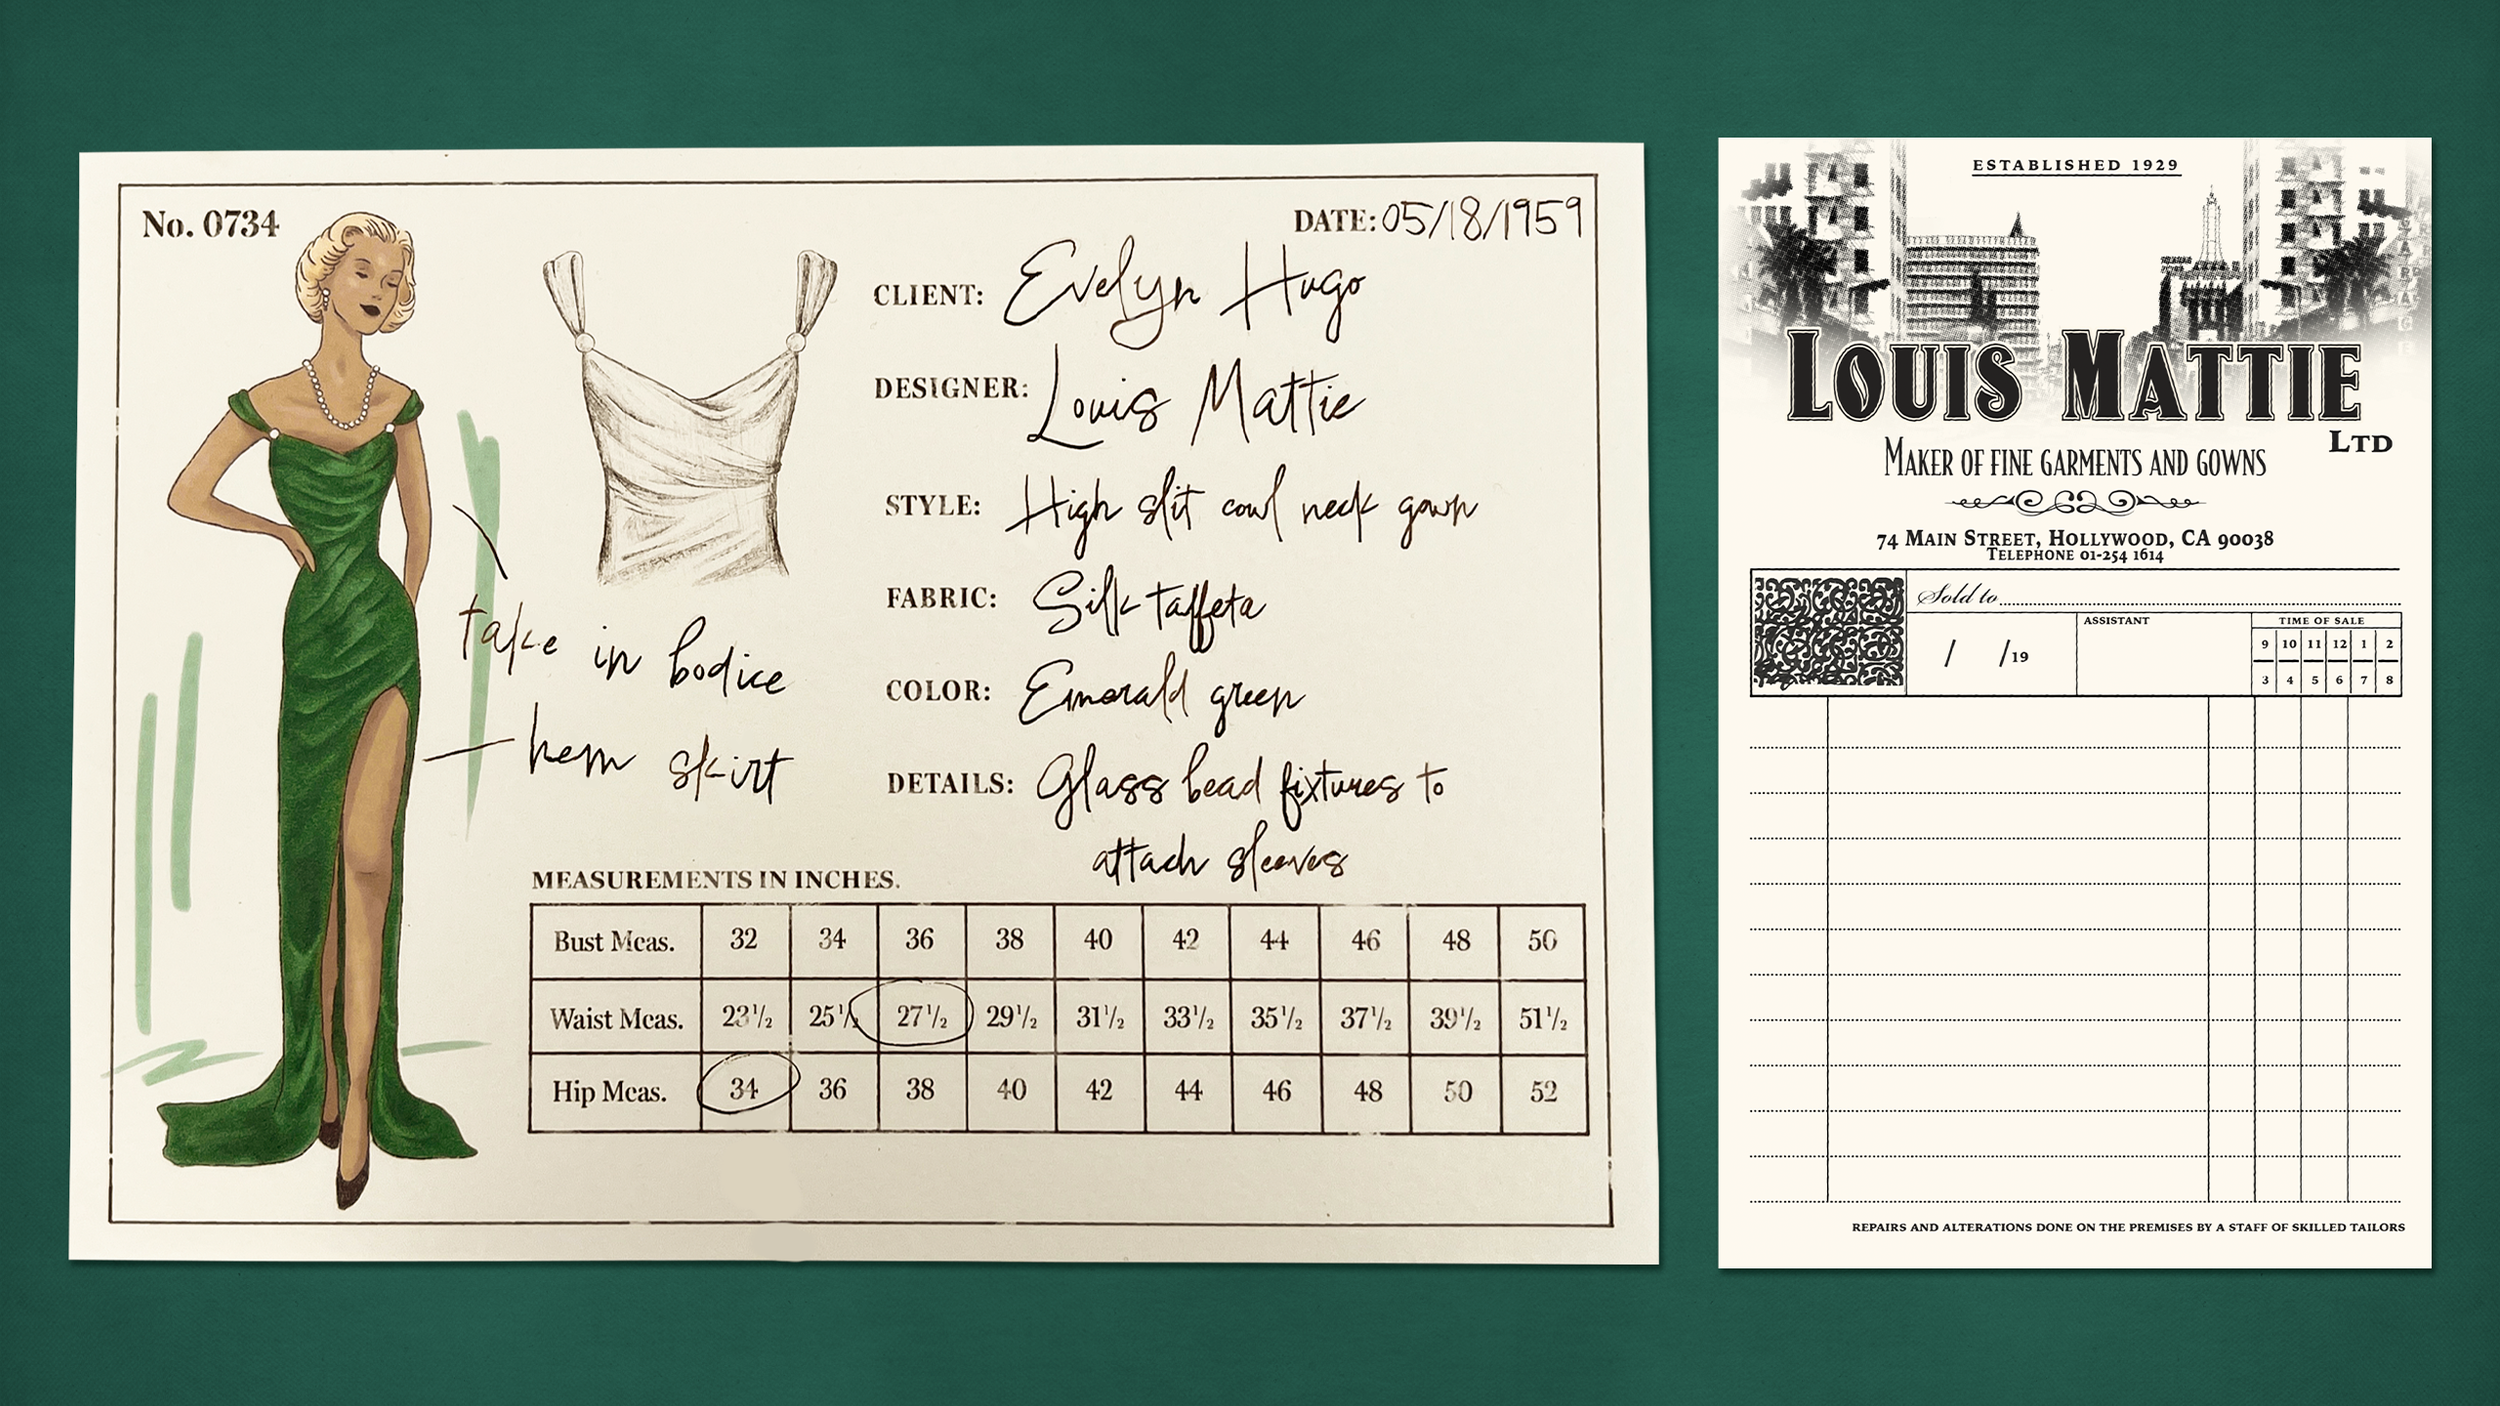 No. 0734
DATE: 05/18/1959
CLIENT: Evelyn Hugo
DESIGNER: Louis Mattie
STYLE: High slit cowl neck gown
FABRIC: Silk taffeta
COLOR: Emerald green
DETAILS: Glass bead fixtures to
attach sleeves
take in bodice
hem skirt
MEASUREMENTS IN INCHES.
Bust Meas. 32 34 36 38 40 42 44 46 48 50
Waist Meas. 23 1/2 25 1/2 27 1/2 29 1/2 31 1/2 33 1/2 35 1/2 37 1/2 39 1/2 51 1/2
Hip Meas. 34 36 38 40 42 44 46 48 50 52
ESTABLISHED 1929
LOUIS MATTIE
LTD
MAKER OF FINE GARMENTS AND GOWNS
74 MAIN STREET, HOLLYWOOD, CA 90038
TELEPHONE 01-254 1614
Sold to
/ /19
ASSISTANT
TIME OF SALE
9 10 11 12 1 2
3 4 5 6 7 8
REPAIRS AND ALTERATIONS DONE ON THE PREMISES BY A STAFF OF SKILLED TAILORS